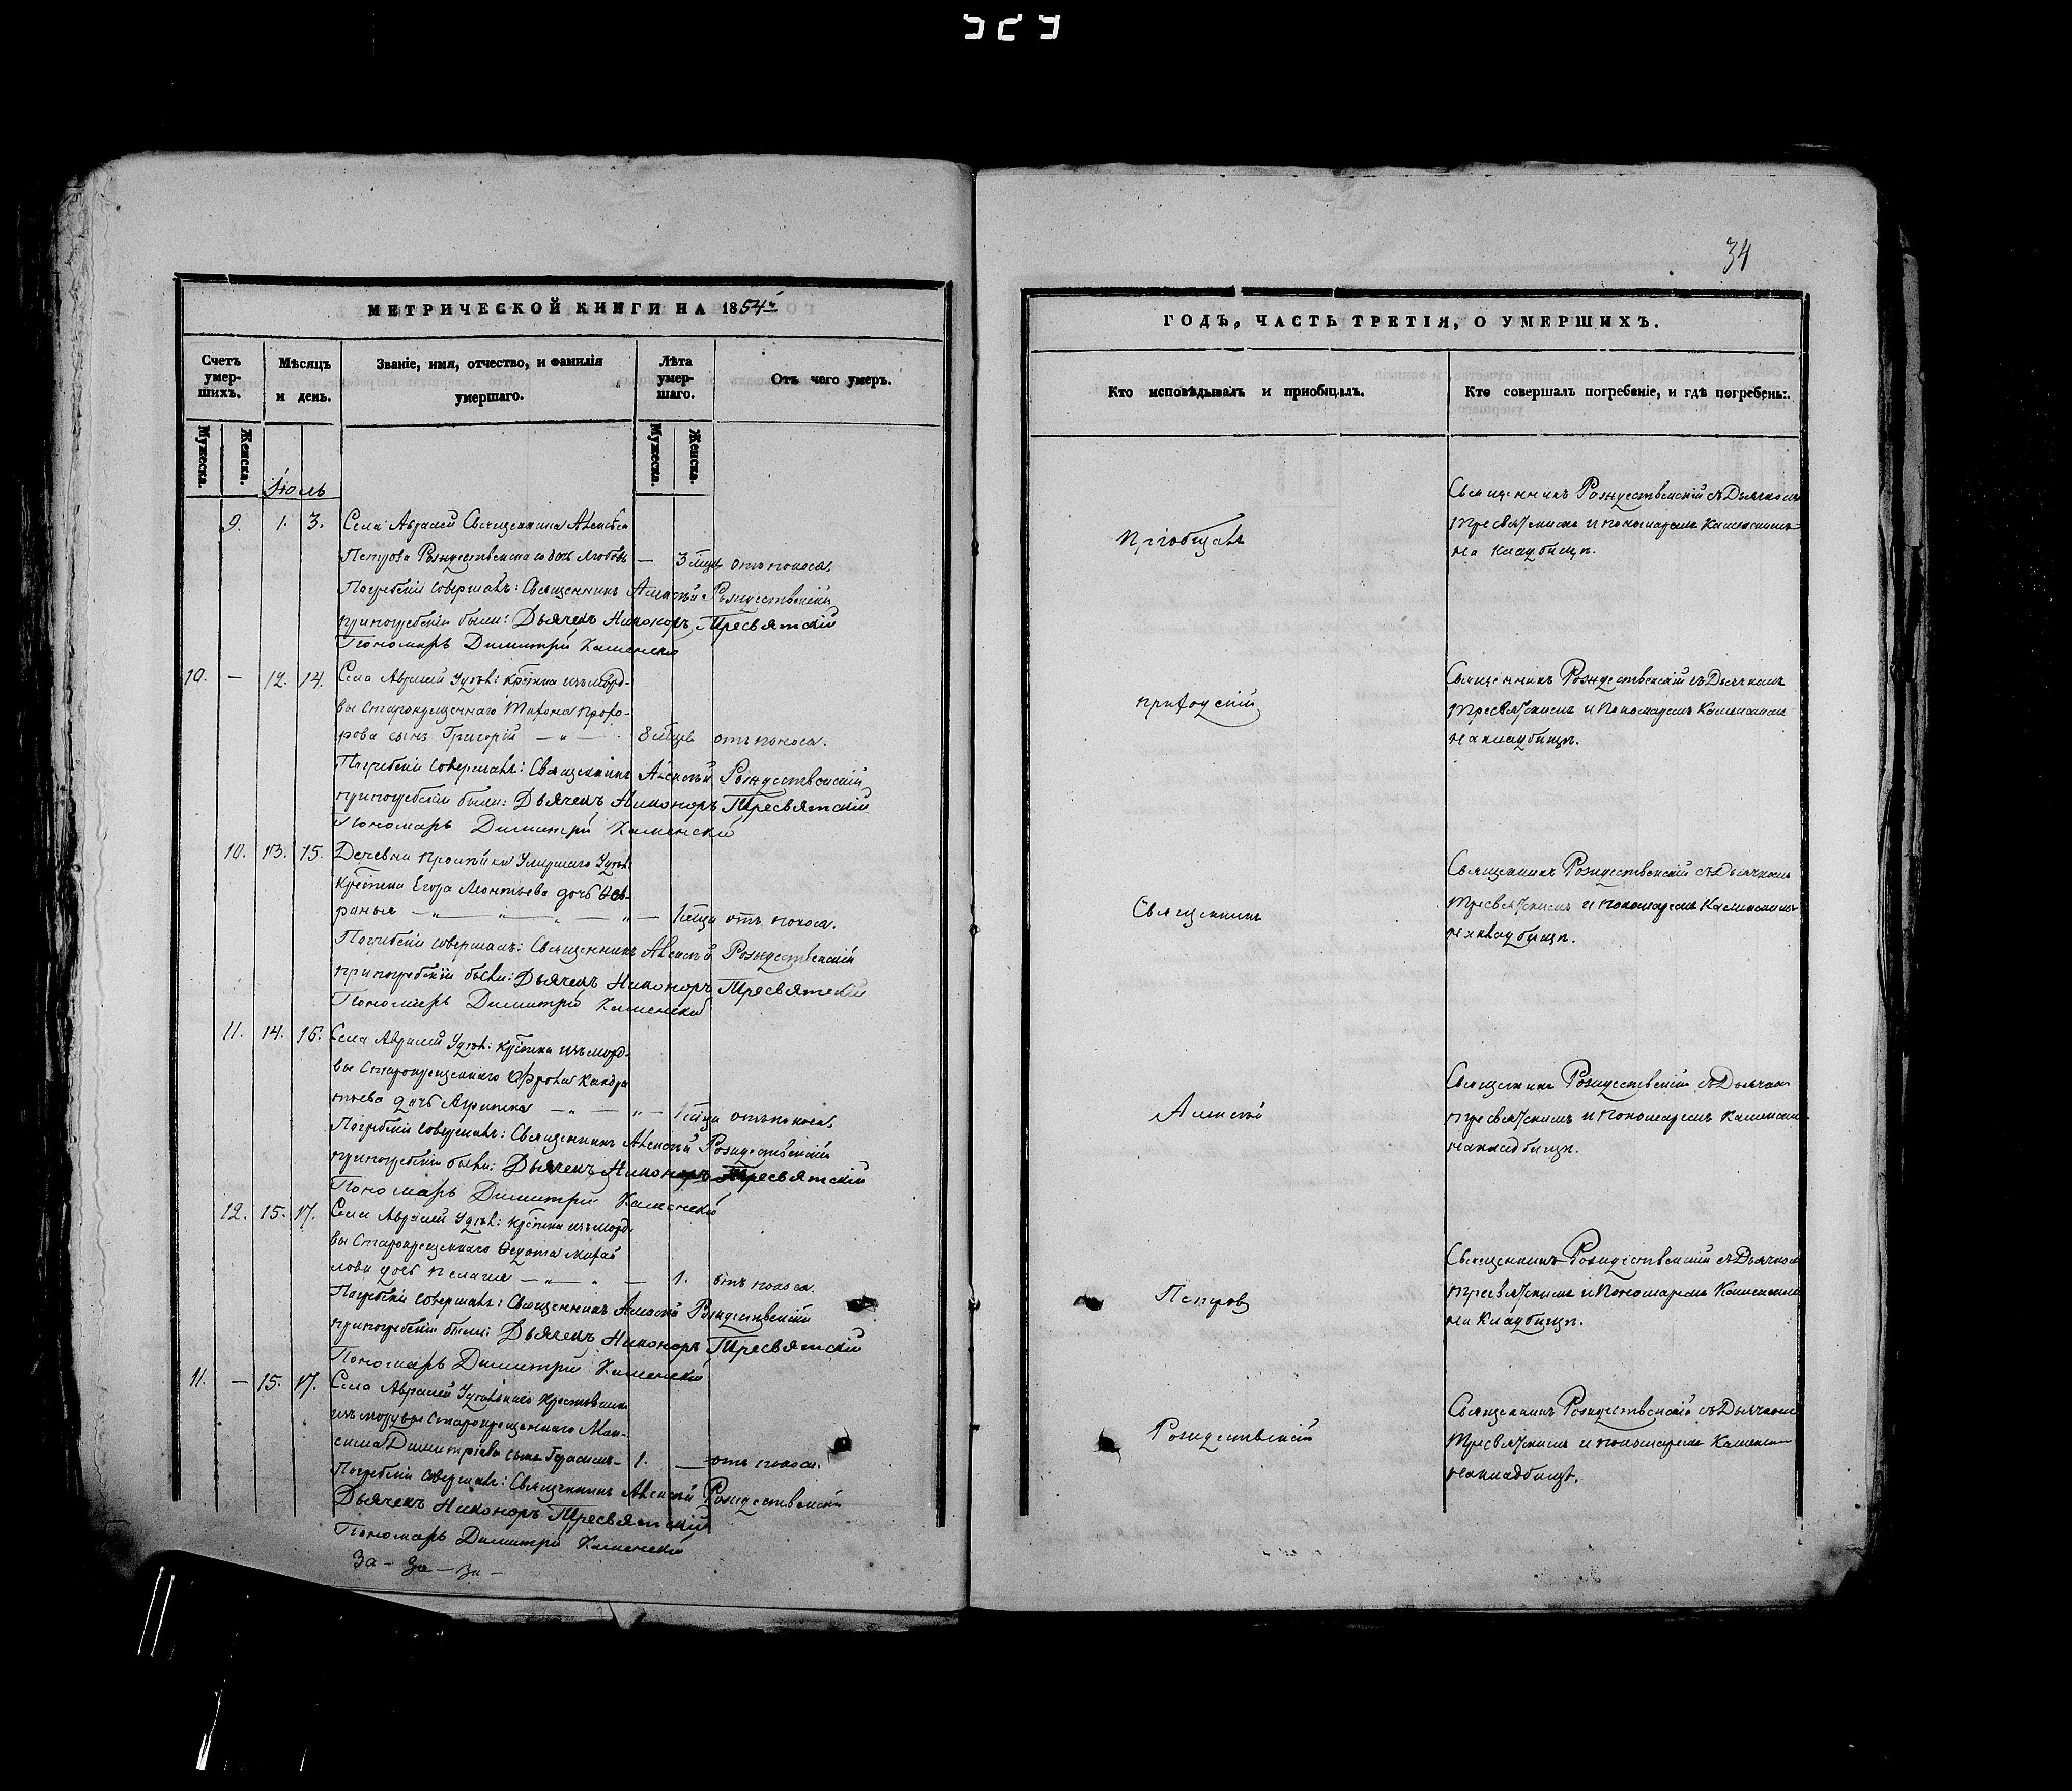 929
МЕТРИЧЕСКОЙ КНИГИ НА 1854й
Счетъ умер-шихъ.
Мѣсяцъ и день.
Званіе, имя, отчество, и фамилія умершаго.
Лѣта умер-шаго.
Отъ чего умеръ.
Мужеска.
Женска.
Мужеска.
Женска.
Іюль
9. 1. 3. Села Авралей Священника Алексѣя
Петрова Рождественскаго дочь Любовь — 3 мѣсц. отъ поноса.
Погребеніе совершалъ: Священникъ Алексѣй Рождественскій
при погребеніи были: Дьячекъ Никоноръ Тресвятскій
Пономарь Димитрій Каменскій
10. — 12. 14. Села Авралей Удѣл: крестьянина изъ морд-
вы Старокрещеннаго Прохо-
рова сынъ Григорій — „ — 8 мѣсцв отъ поноса.
Погребеніе совершалъ: Священникъ Алексѣй Рождественскій
при погребеніи были: Дьячекъ Никоноръ Тресвятскій
Пономарь Димитрій Каменскій
10. 13. 15. Деревни умершаго Удѣл:
крестьянина Егора Леонтьева дочь Фев-
ронья — „ — „ — „ — 1 мѣсца отъ поноса.
Погребеніе совершалъ: Священникъ Алексѣй Рождественскій
при погребеніи были: Дьячекъ Никоноръ Тресвятскій
Пономарь Димитрій Каменскій
11. 14. 16. Села Авралей Удѣл: крестьянина изъ морд-
вы Старокрещеннаго Кандра
тьева дочь Агрипена — „ — „ — 1 мѣсца отъ поноса.
Погребеніе совершалъ: Священникъ Алексѣй Рождественскій
при погребеніи были: Дьячекъ Никоноръ Тресвятскій
Пономарь Димитрій Каменскій
12. 15. 17. Села Авралей Удѣл: крестьянина изъ морд-
вы Старокрещеннаго Ѳедота Михай
лова дочь Пелагея — „ — „ — 1. отъ поноса.
Погребеніе совершалъ: Священникъ Алексѣй Рождественскій
при погребеніи были: Дьячекъ Никоноръ Тресвятскій
Пономарь Димитрій Каменскій
11. — 15. 17. Села Авралей Удѣльнаго Крестьянина
изъ мордвы Старокрещеннаго Мак-
сима Димитріева сынъ Герасимъ — 1. — отъ поноса.
Погребеніе совершалъ: Священникъ Алексѣй Рождественскій
Дьячекъ Никоноръ Тресвятскій
Пономарь Димитрій Каменскій
За — За — За —
34
ГОДЪ, ЧАСТЬ ТРЕТІЯ, О УМЕРШИХЪ.
Кто исповѣдывалъ и пріобщалъ.
Кто совершалъ погребеніе, и гдѣ погребены.
Пріобщалъ
Священникъ Рождественскій съ Дьячкомъ
Тресвятскимъ и пономаремъ Каменскимъ
на кладбищѣ.
приходскій
Священникъ Рождественскій съ Дьячкомъ
Тресвятскимъ и Пономаремъ Каменскимъ
на кладбищѣ.
Священникъ
Священникъ Рождественскій съ Дьячкомъ
Тресвятскимъ и пономаремъ Каменскимъ
на кладбищѣ.
Алексѣй
Священникъ Рождественскій съ Дьячкомъ
Тресвятскимъ и Пономаремъ Каменскимъ
на кладбищѣ.
Петровъ
Священникъ Рождественскій съ Дьячкомъ
Тресвятскимъ и Пономаремъ Каменскимъ
на кладбищѣ.
Рождественскій
Священникъ Рождественскій съ Дьячкомъ
Тресвятскимъ и пономаремъ Каменским
на кладбищѣ.